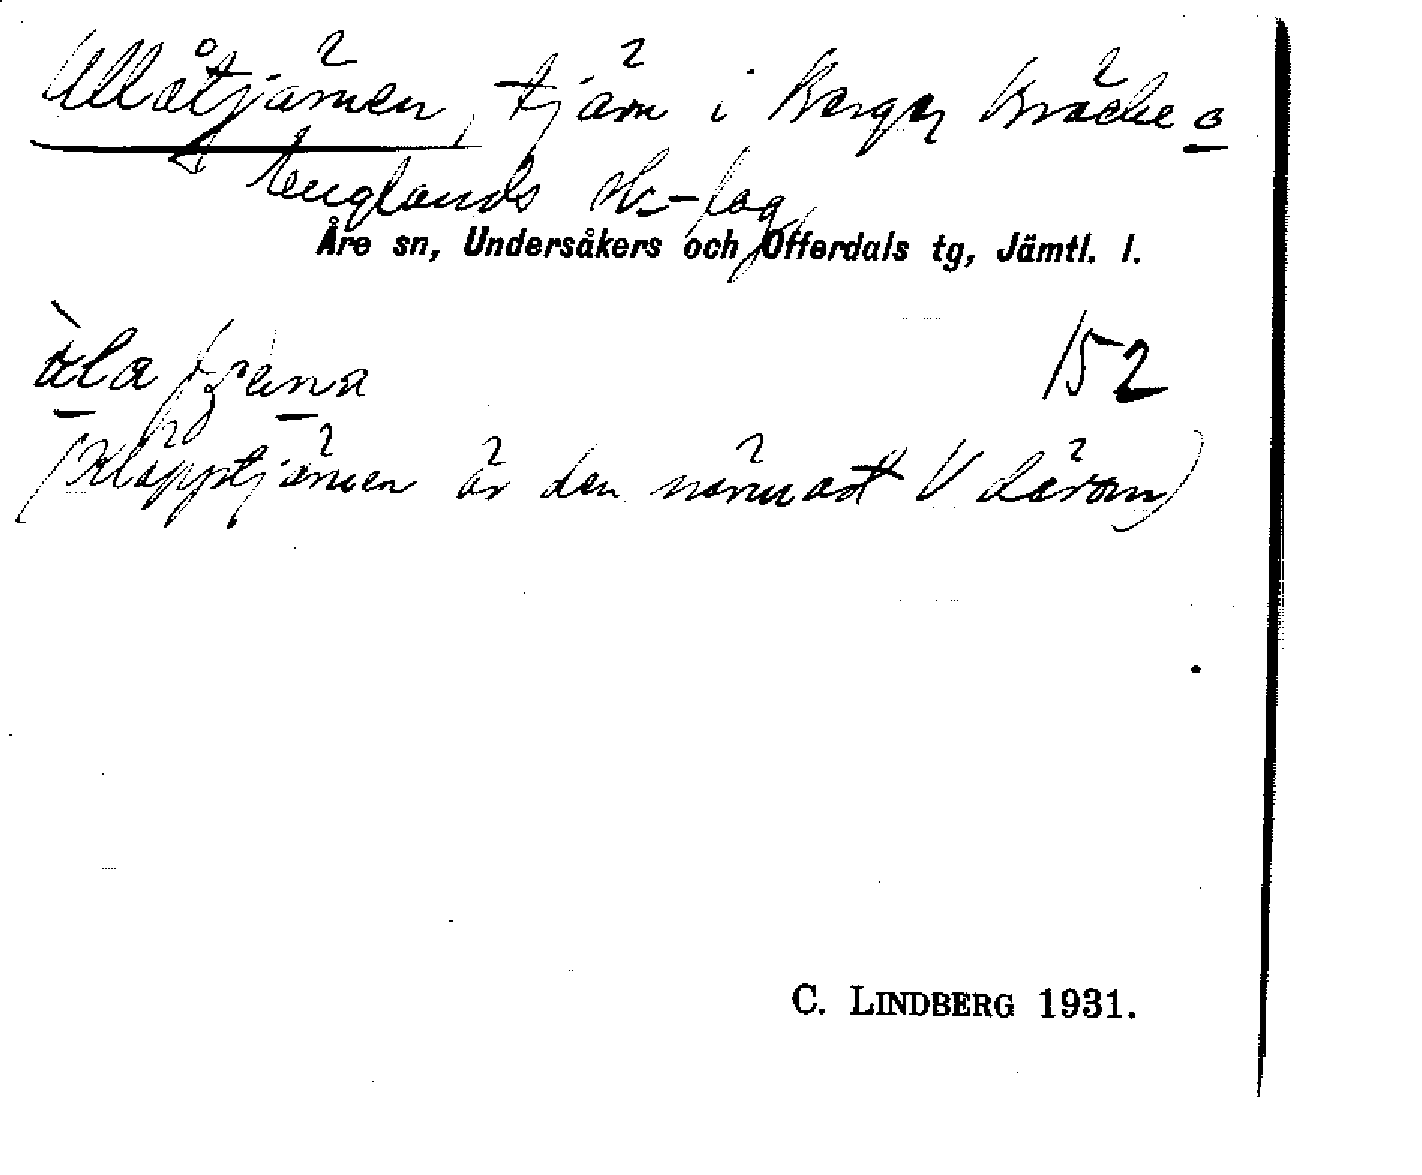 Ullåtjärnen, tjärn i Berge, Bräcke o
Englands sk-lag
Åre sn, Undersåkers och Offerdals tg, Jämtl. l.
152
(Kläpptjärnen är den närmast V därom)
C. LINDBERG 1931.